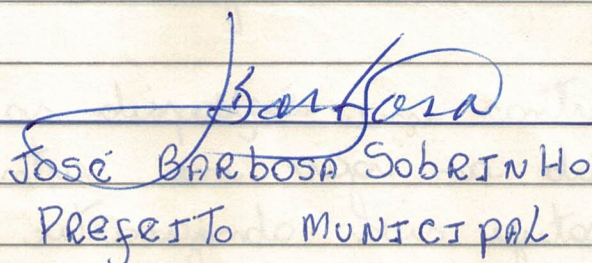 Barbosa
José BARbOSA SObRINHO
PREfEITO MUNICIPAL